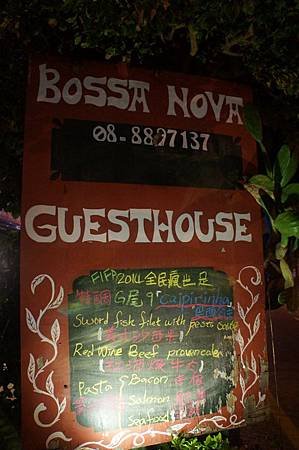 BOSSA NOVA
08-8897137
GUESTHOUSE
FIFA 2014 全民瘋世足
特調 Caipirinha
Sword fish filet with pesto
Red Wine Beef provencale
Pasta & Bacon
Salmon
Seafood